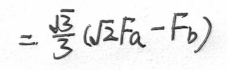 = \frac{\sqrt{3}}{3} (\sqrt{2} F_a - F_b)